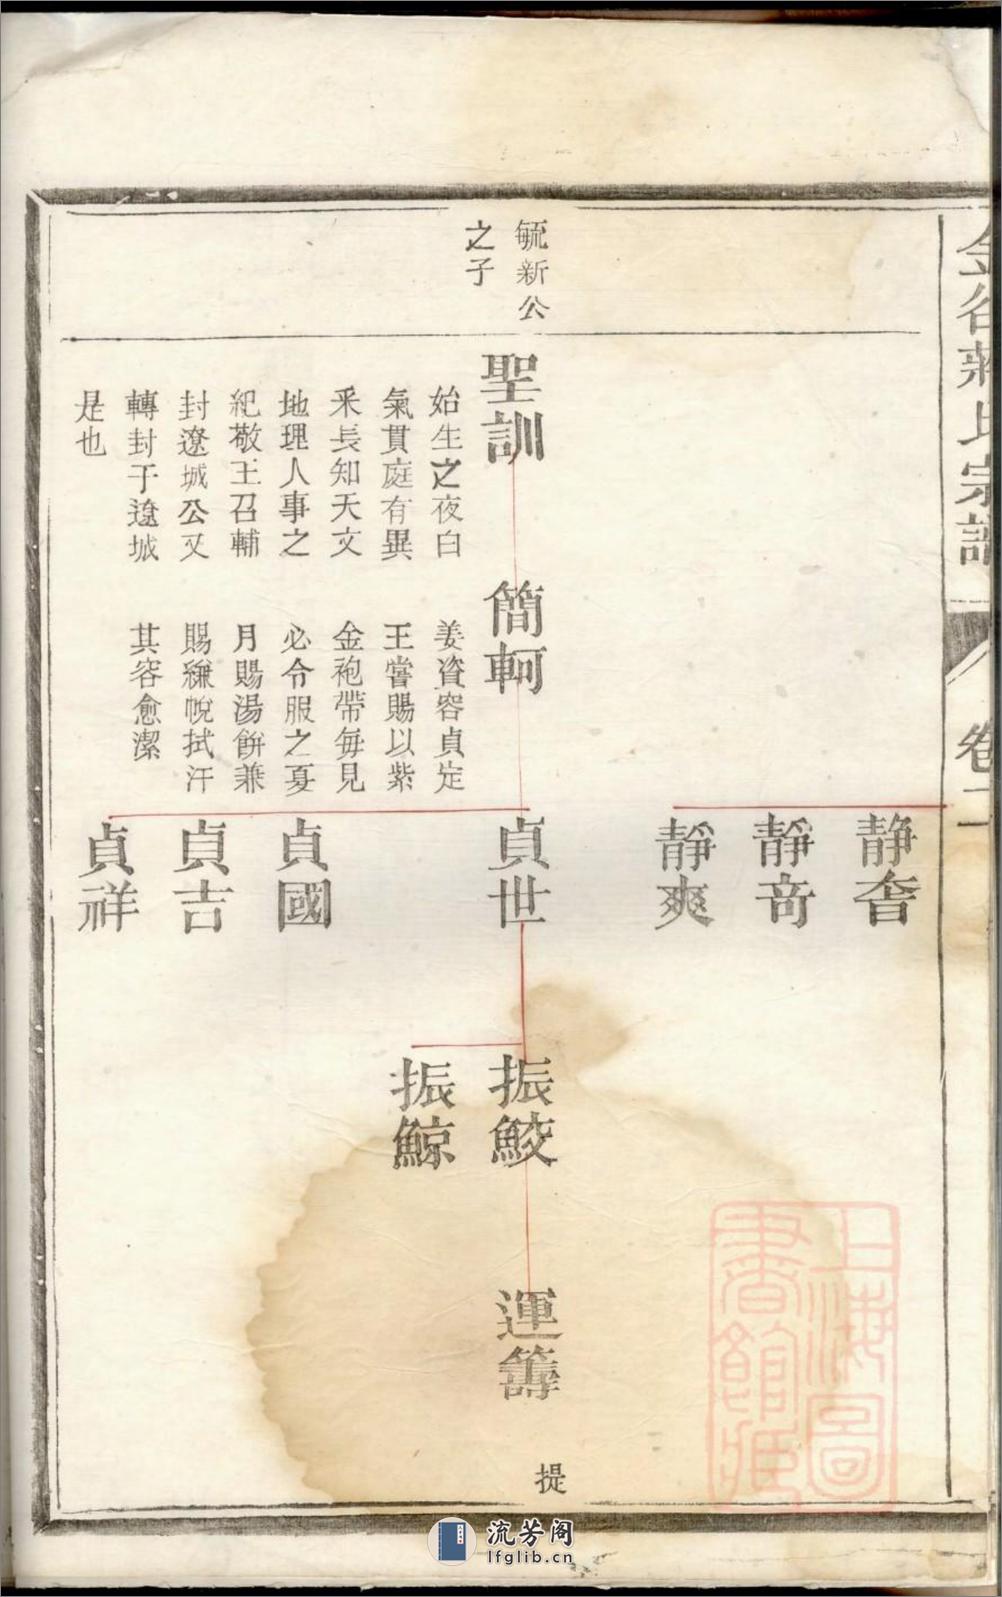 金谷蔣氏宗譜
卷二
靜奢
靜竒
靜爽
毓新公
之子
聖訓
始生之夜白
氣貫庭有異
釆長知天文
地理人事之
紀敬王召輔
封遼城公又
轉封于遼城
是也
簡軻
姜資容貞定
王嘗賜以紫
金袍帶每見
必令服之夏
月賜湯餅兼
賜縑帨拭汗
其容愈潔
貞世
貞國
貞吉
貞祥
振鮫
振鯨
運籌
提
上海圖
書館藏
流芳阁
lfglib.cn